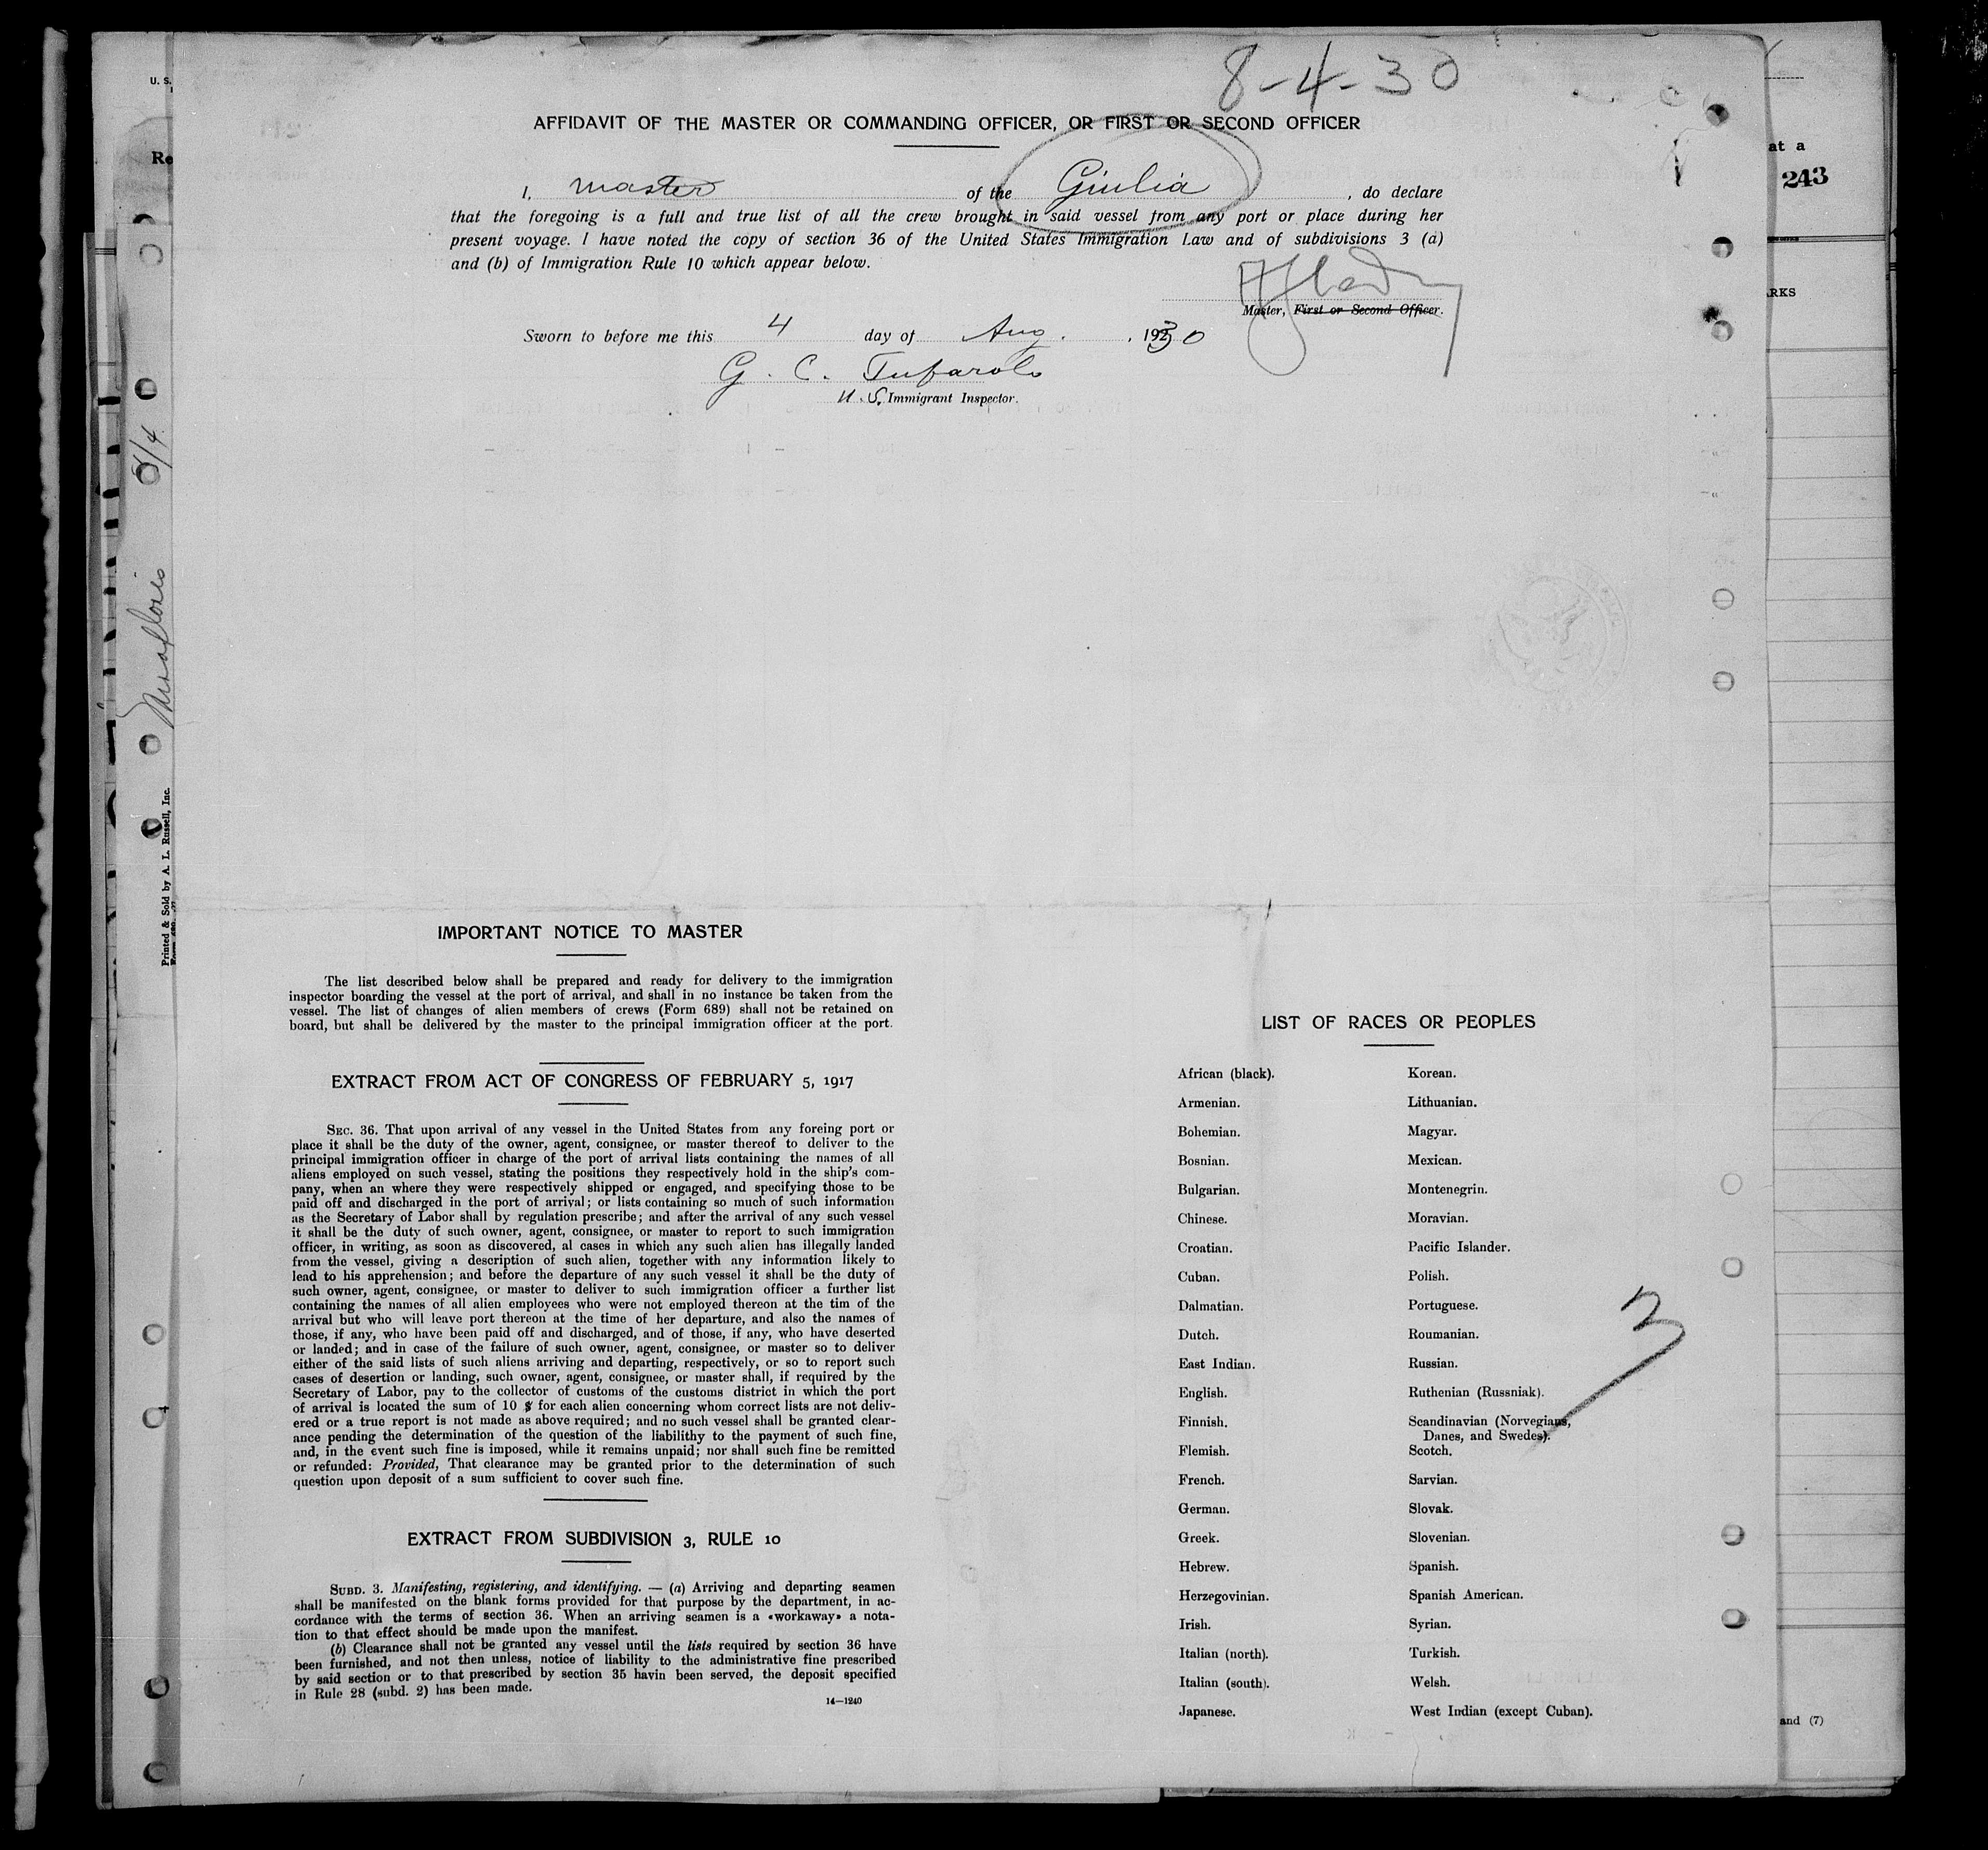 8-4-30
AFFIDAVIT OF THE MASTER OR COMMANDING OFFICER, OR FIRST OR SECOND OFFICER
I, master of the Giulia, do declare
that the foregoing is a full and true list of all the crew brought in said vessel from any port or place during her
present voyage. I have noted the copy of section 36 of the United States Immigration Law and of subdivisions 3 (a)
and (b) of Immigration Rule 10 which appear below.
Master, First or Second Officer.
Sworn to before me this 4 day of Aug. , 1930
G. C. Tufarolo
U. S. Immigrant Inspector.
IMPORTANT NOTICE TO MASTER
The list described below shall be prepared and ready for delivery to the immigration
inspector boarding the vessel at the port of arrival, and shall in no instance be taken from the
vessel. The list of changes of alien members of crews (Form 689) shall not be retained on
board, but shall be delivered by the master to the principal immigration officer at the port.
EXTRACT FROM ACT OF CONGRESS OF FEBRUARY 5, 1917
SEC. 36. That upon arrival of any vessel in the United States from any foreing port or
place it shall be the duty of the owner, agent, consignee, or master thereof to deliver to the
principal immigration officer in charge of the port of arrival lists containing the names of all
aliens employed on such vessel, stating the positions they respectively hold in the ship's com-
pany, when an where they were respectively shipped or engaged, and specifying those to be
paid off and discharged in the port of arrival; or lists containing so much of such information
as the Secretary of Labor shall by regulation prescribe; and after the arrival of any such vessel
it shall be the duty of such owner, agent, consignee, or master to report to such immigration
officer, in writing, as soon as discovered, al cases in which any such alien has illegally landed
from the vessel, giving a description of such alien, together with any information likely to
lead to his apprehension; and before the departure of any such vessel it shall be the duty of
such owner, agent, consignee, or master to deliver to such immigration officer a further list
containing the names of all alien employees who were not employed thereon at the tim of the
arrival but who will leave port thereon at the time of her departure, and also the names of
those, if any, who have been paid off and discharged, and of those, if any, who have deserted
or landed; and in case of the failure of such owner, agent, consignee, or master so to deliver
either of the said lists of such aliens arriving and departing, respectively, or so to report such
cases of desertion or landing, such owner, agent, consignee, or master shall, if required by the
Secretary of Labor, pay to the collector of customs of the customs district in which the port
of arrival is located the sum of 10 $ for each alien concerning whom correct lists are not deliv-
ered or a true report is not made as above required; and no such vessel shall be granted clear-
ance pending the determination of the question of the liabilithy to the payment of such fine,
and, in the event such fine is imposed, while it remains unpaid; nor shall such fine be remitted
or refunded: Provided, That clearance may be granted prior to the determination of such
question upon deposit of a sum sufficient to cover such fine.
EXTRACT FROM SUBDIVISION 3, RULE 10
SUBD. 3. Manifesting, registering, and identifying. — (a) Arriving and departing seamen
shall be manifested on the blank forms provided for that purpose by the department, in ac-
cordance with the terms of section 36. When an arriving seamen is a «workaway» a nota-
tion to that effect should be made upon the manifest.
(b) Clearance shall not be granted any vessel until the lists required by section 36 have
been furnished, and not then unless, notice of liability to the administrative fine prescribed
by said section or to that prescribed by section 35 havin been served, the deposit specified
in Rule 28 (subd. 2) has been made.
14—1240
LIST OF RACES OR PEOPLES
African (black).
Armenian.
Bohemian.
Bosnian.
Bulgarian.
Chinese.
Croatian.
Cuban.
Dalmatian.
Dutch.
East Indian.
English.
Finnish.
Flemish.
French.
German.
Greek.
Hebrew.
Herzegovinian.
Irish.
Italian (north).
Italian (south).
Japanese.
Korean.
Lithuanian.
Magyar.
Mexican.
Montenegrin.
Moravian.
Pacific Islander.
Polish.
Portuguese.
Roumanian.
Russian.
Ruthenian (Russniak).
Scandinavian (Norvegians,
Danes, and Swedes).
Scotch.
Sarvian.
Slovak.
Slovenian.
Spanish.
Spanish American.
Syrian.
Turkish.
Welsh.
West Indian (except Cuban).
3
U. S.
Re
8/4
Printed & Sold by A. L. Russell, Inc.
at a
243
RKS
and (7)